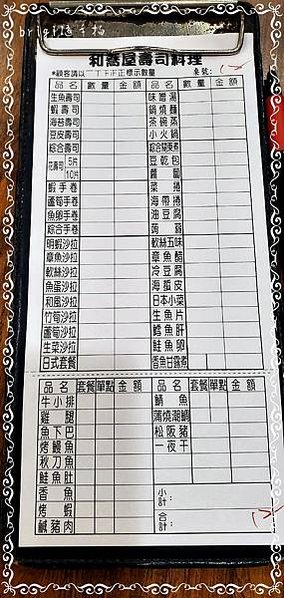 和喬屋壽司料理
*顧客請以一丁下正正標示數量 桌號:
品名 數量 金額 品名 數量 金額
生魚壽司 味噌湯
蝦壽司 鍋燒麵
海苔壽司 茶碗蒸
豆皮壽司 小火鍋
綜合壽司 綜合關東煮
花壽司 5片 豆乾包
10片 蘿蔔
蝦手卷 菜捲
蘆筍手卷 海帶捲
魚卵手卷 油豆腐
綜合手卷 蒟蒻
明蝦沙拉 軟絲五味
章魚沙拉 章魚醋
軟絲沙拉 冷豆腐
魚蛋沙拉 海蜇皮
和風沙拉 日本小菜
竹筍沙拉 生魚片
蘆筍沙拉 鱈魚肝
生菜沙拉 鮭魚卵
日式套餐 香魚甘露煮
品名 套餐 單點 金額 品名 套餐 單點 金額
牛小排 鯖魚
雞腿 蒲燒潮鯛
魚下巴 松阪豬
烤鰻魚 一夜干
秋刀魚
鮭魚肚
香魚 小計:
烤蝦
鹹豬肉 合計: